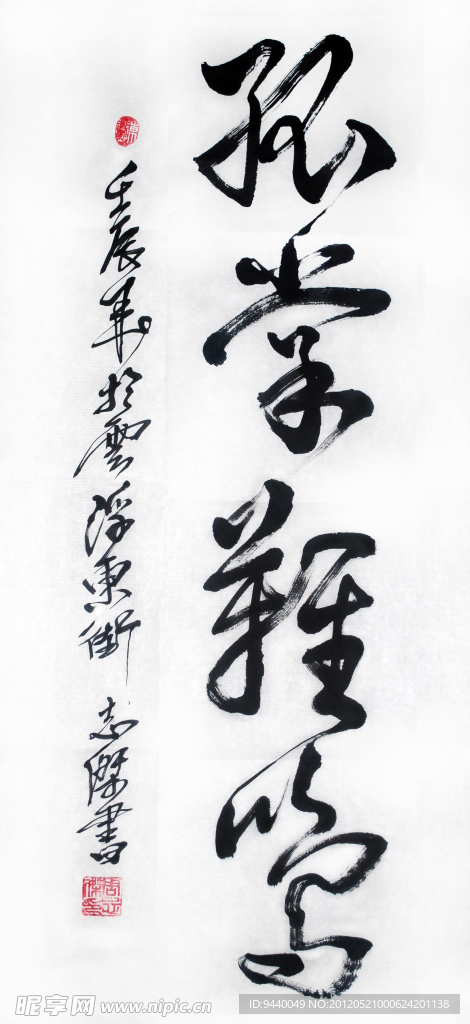 孤掌難鳴
壬辰春於雲浮東街 志傑書
昵享网 www.nipic.cn
ID:9440049 NO:20120521000624201138